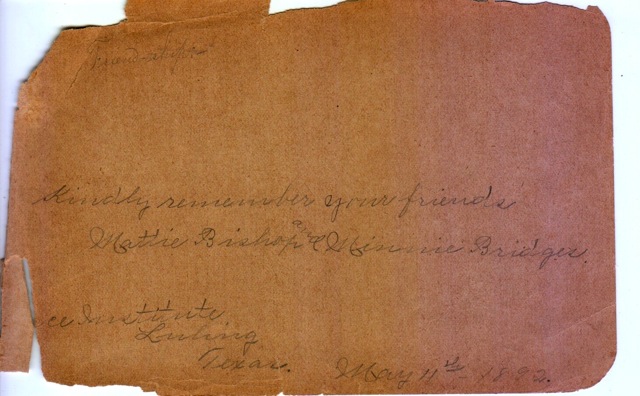 Friendship
Kindly remember your friends
Mattie Bishop and Minnie Bridges.
ce Institute
Luling
Texas. May 4th 1892.